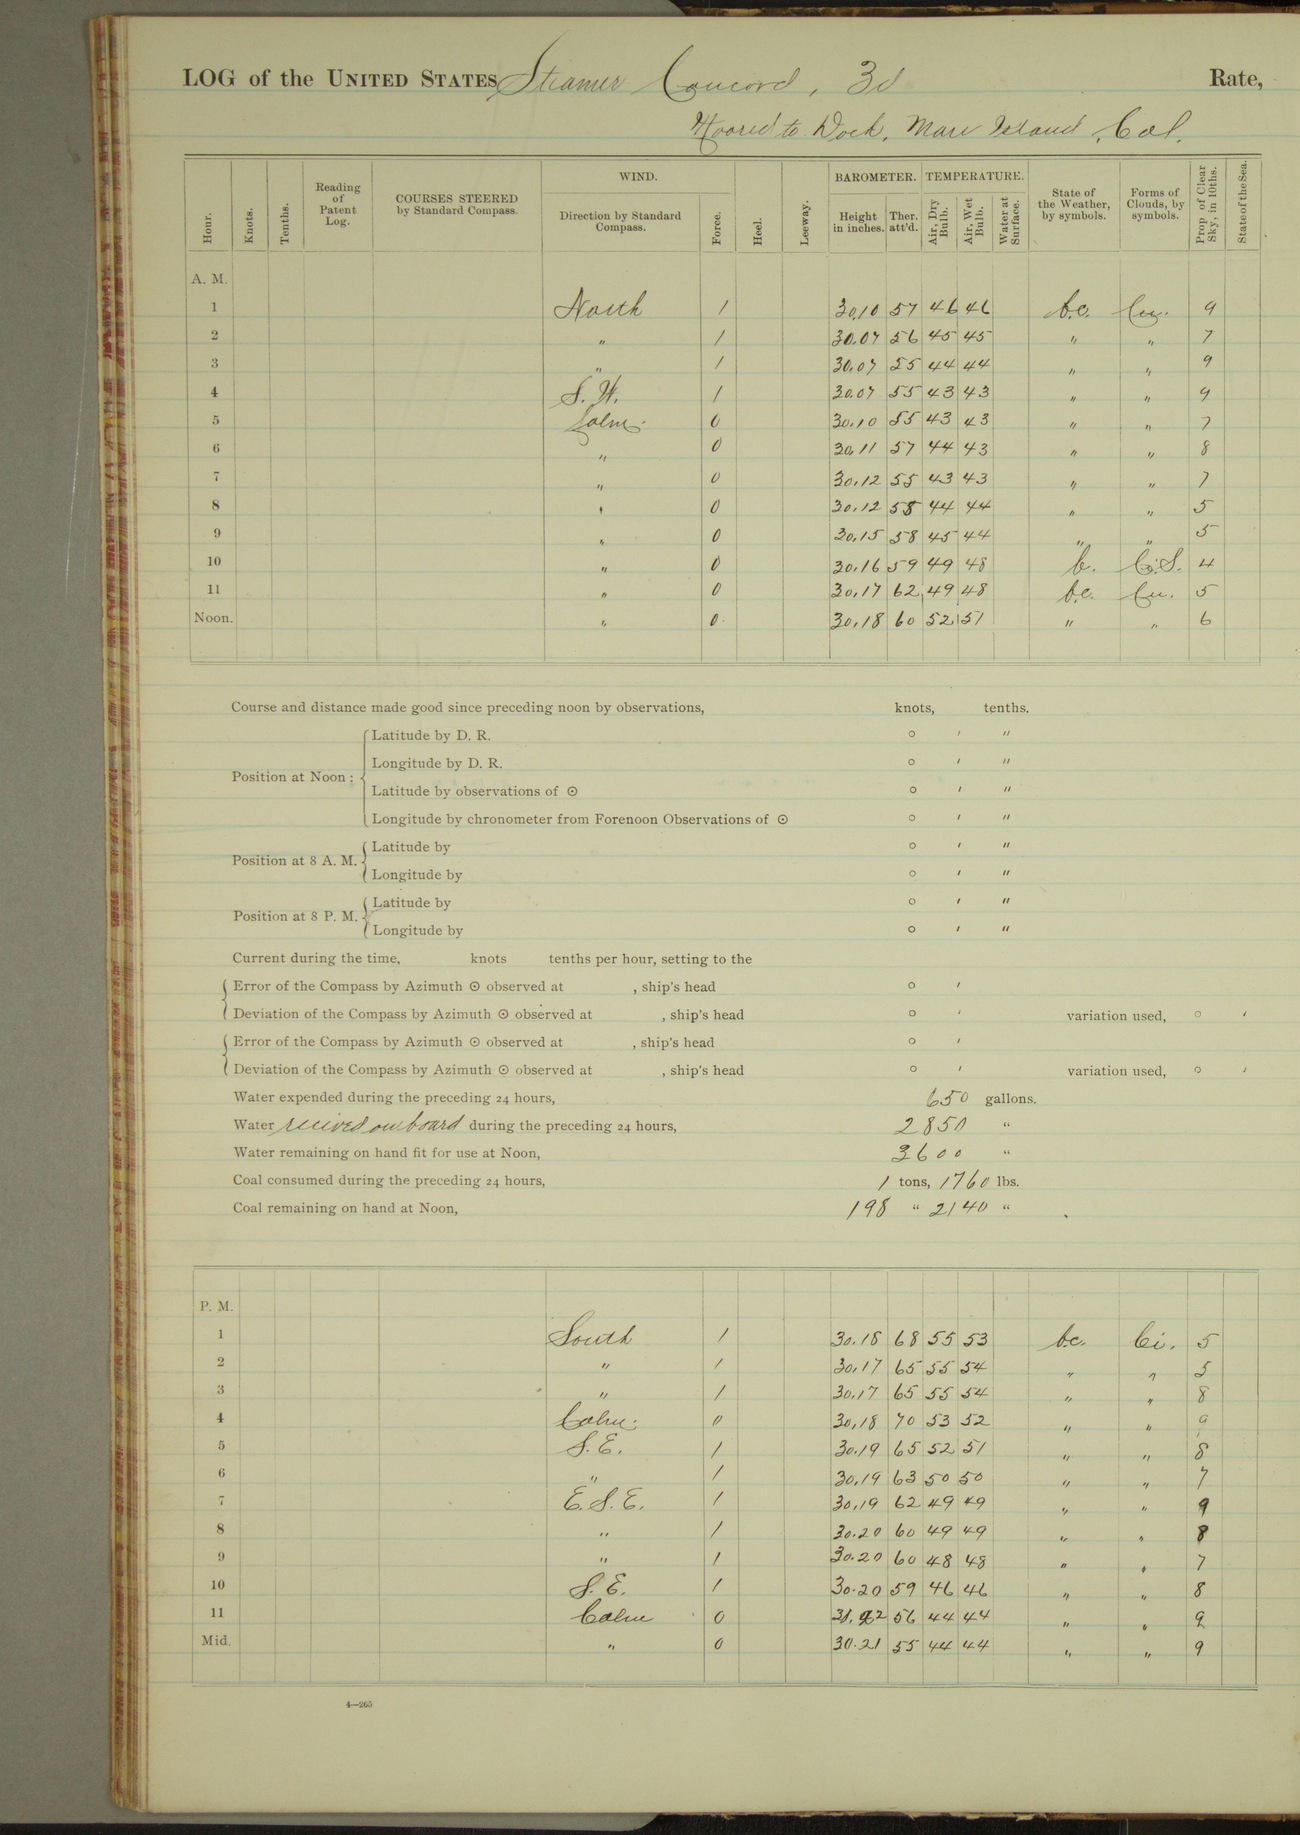 LOG of the UNITED STATES Steamer Concord, 3d Rate,
Moored to Dock, Mare Island, Cal.
Hour. Knots. Tenths. Reading of Patent Log. COURSES STEERED by Standard Compass. WIND. Direction by Standard Compass. Force. Heel. Leeway. BAROMETER. Height in inches. Ther. att'd. TEMPERATURE. Air, Dry Bulb. Air, Wet Bulb. Water at Surface. State of the Weather, by symbols. Forms of Clouds, by symbols. Prop. of Clear Sky, in 10ths. State of the Sea.
A. M.
1 North 1 30.10 57 46 46 b.c. Cu. 9
2 " 1 30.07 56 45 45 " " 7
3 " 1 30.07 55 44 44 " " 9
4 S.W. 1 30.07 55 43 43 " " 9
5 Calm 0 30.10 55 43 43 " " 7
6 " 0 30.11 57 44 43 " " 8
7 " 0 30.12 55 43 43 " " 7
8 " 0 30.12 58 44 44 " " 5
9 " 0 30.15 58 45 44 " " 5
10 " 0 30.16 59 49 48 b. Ci.S. 4
11 " 0 30.17 62 49 48 b.c. Cu. 5
Noon. " 0 30.18 60 52 51 " " 6
Course and distance made good since preceding noon by observations, knots, tenths.
Position at Noon: Latitude by D. R. ° ' "
Longitude by D. R. ° ' "
Latitude by observations of ⊙ ° ' "
Longitude by chronometer from Forenoon Observations of ⊙ ° ' "
Position at 8 A. M. Latitude by ° ' "
Longitude by ° ' "
Position at 8 P. M. Latitude by ° ' "
Longitude by ° ' "
Current during the time, knots tenths per hour, setting to the
Error of the Compass by Azimuth ⊙ observed at , ship's head ° '
Deviation of the Compass by Azimuth ⊙ observed at , ship's head ° ' variation used, ° '
Error of the Compass by Azimuth ⊙ observed at , ship's head ° '
Deviation of the Compass by Azimuth ⊙ observed at , ship's head ° ' variation used, ° '
Water expended during the preceding 24 hours, 650 gallons.
Water recived on board during the preceding 24 hours, 2850 "
Water remaining on hand fit for use at Noon, 3600 "
Coal consumed during the preceding 24 hours, 1 tons, 1760 lbs.
Coal remaining on hand at Noon, 198 " 2140 "
P. M.
1 South 1 30.18 68 55 53 b.c. Ci. 5
2 " 1 30.17 65 55 54 " " 5
3 " 1 30.17 65 55 54 " " 8
4 Calm. 0 30.18 70 53 52 " " 9
5 S.E. 1 30.19 65 52 51 " " 8
6 " 1 30.19 63 50 50 " " 7
7 E.S.E. 1 30.19 62 49 49 " " 9
8 " 1 30.20 60 49 49 " " 8
9 " 1 30.20 60 48 48 " " 7
10 S.E. 1 30.20 59 46 46 " " 8
11 Calm 0 56 44 44 " " 9
Mid. " 0 30.21 55 44 44 " " 9
4—265